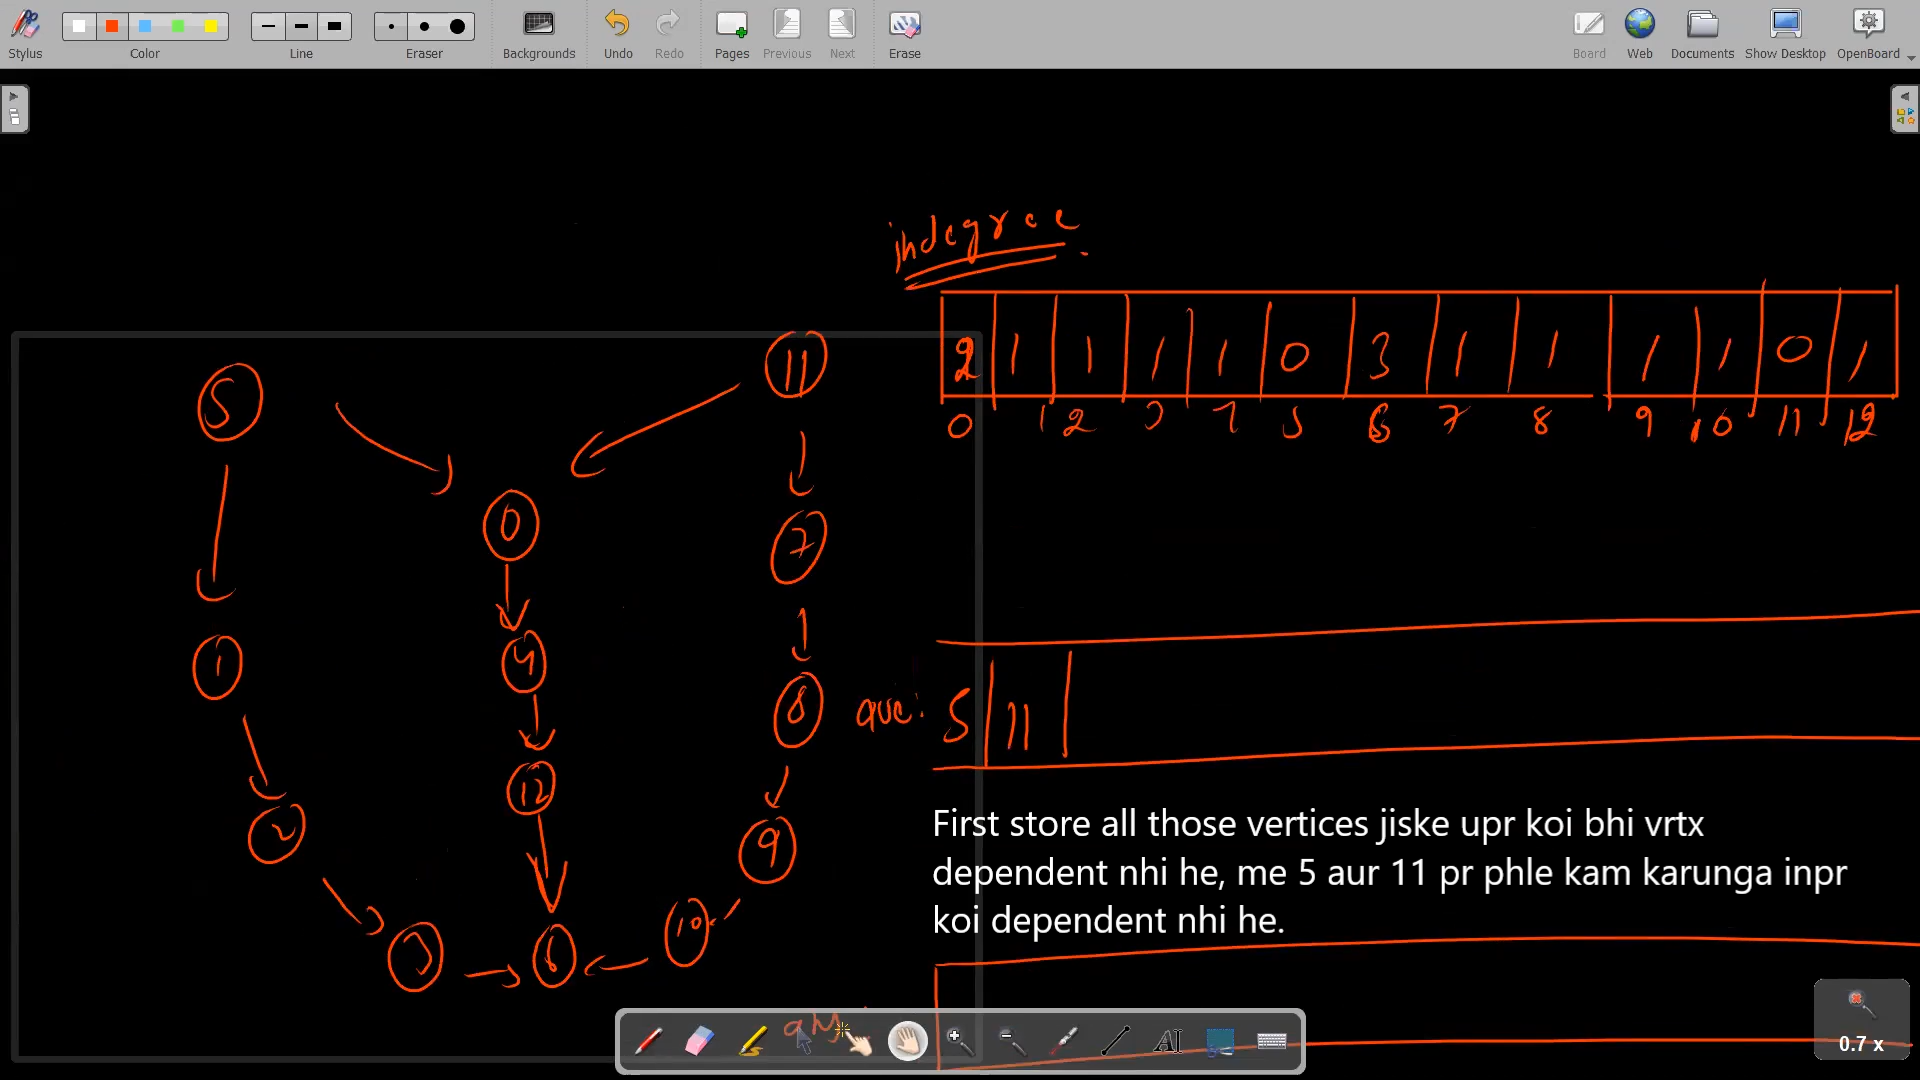 Stylus Color Line Eraser Backgrounds Undo Redo Pages Previous Next Erase Board Web Documents Show Desktop OpenBoard
indegree
2 1 1 1 1 0 3 1 1 1 1 0 1
0 1 2 3 5 6 7 8 9 10 11 12
5 11
0
7
1 4
8 que:
5 11
12
2 9
First store all those vertices jiske upr koi bhi vrtx
dependent nhi he, me 5 aur 11 pr phle kam karunga inpr
koi dependent nhi he.
3 6 10
0.7 x